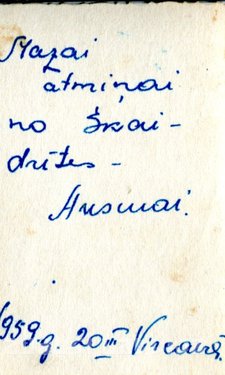 Mazai
atmiņai
no Skai-
drītes -
Ausmai.
1959.g. 20III Viļcavā.